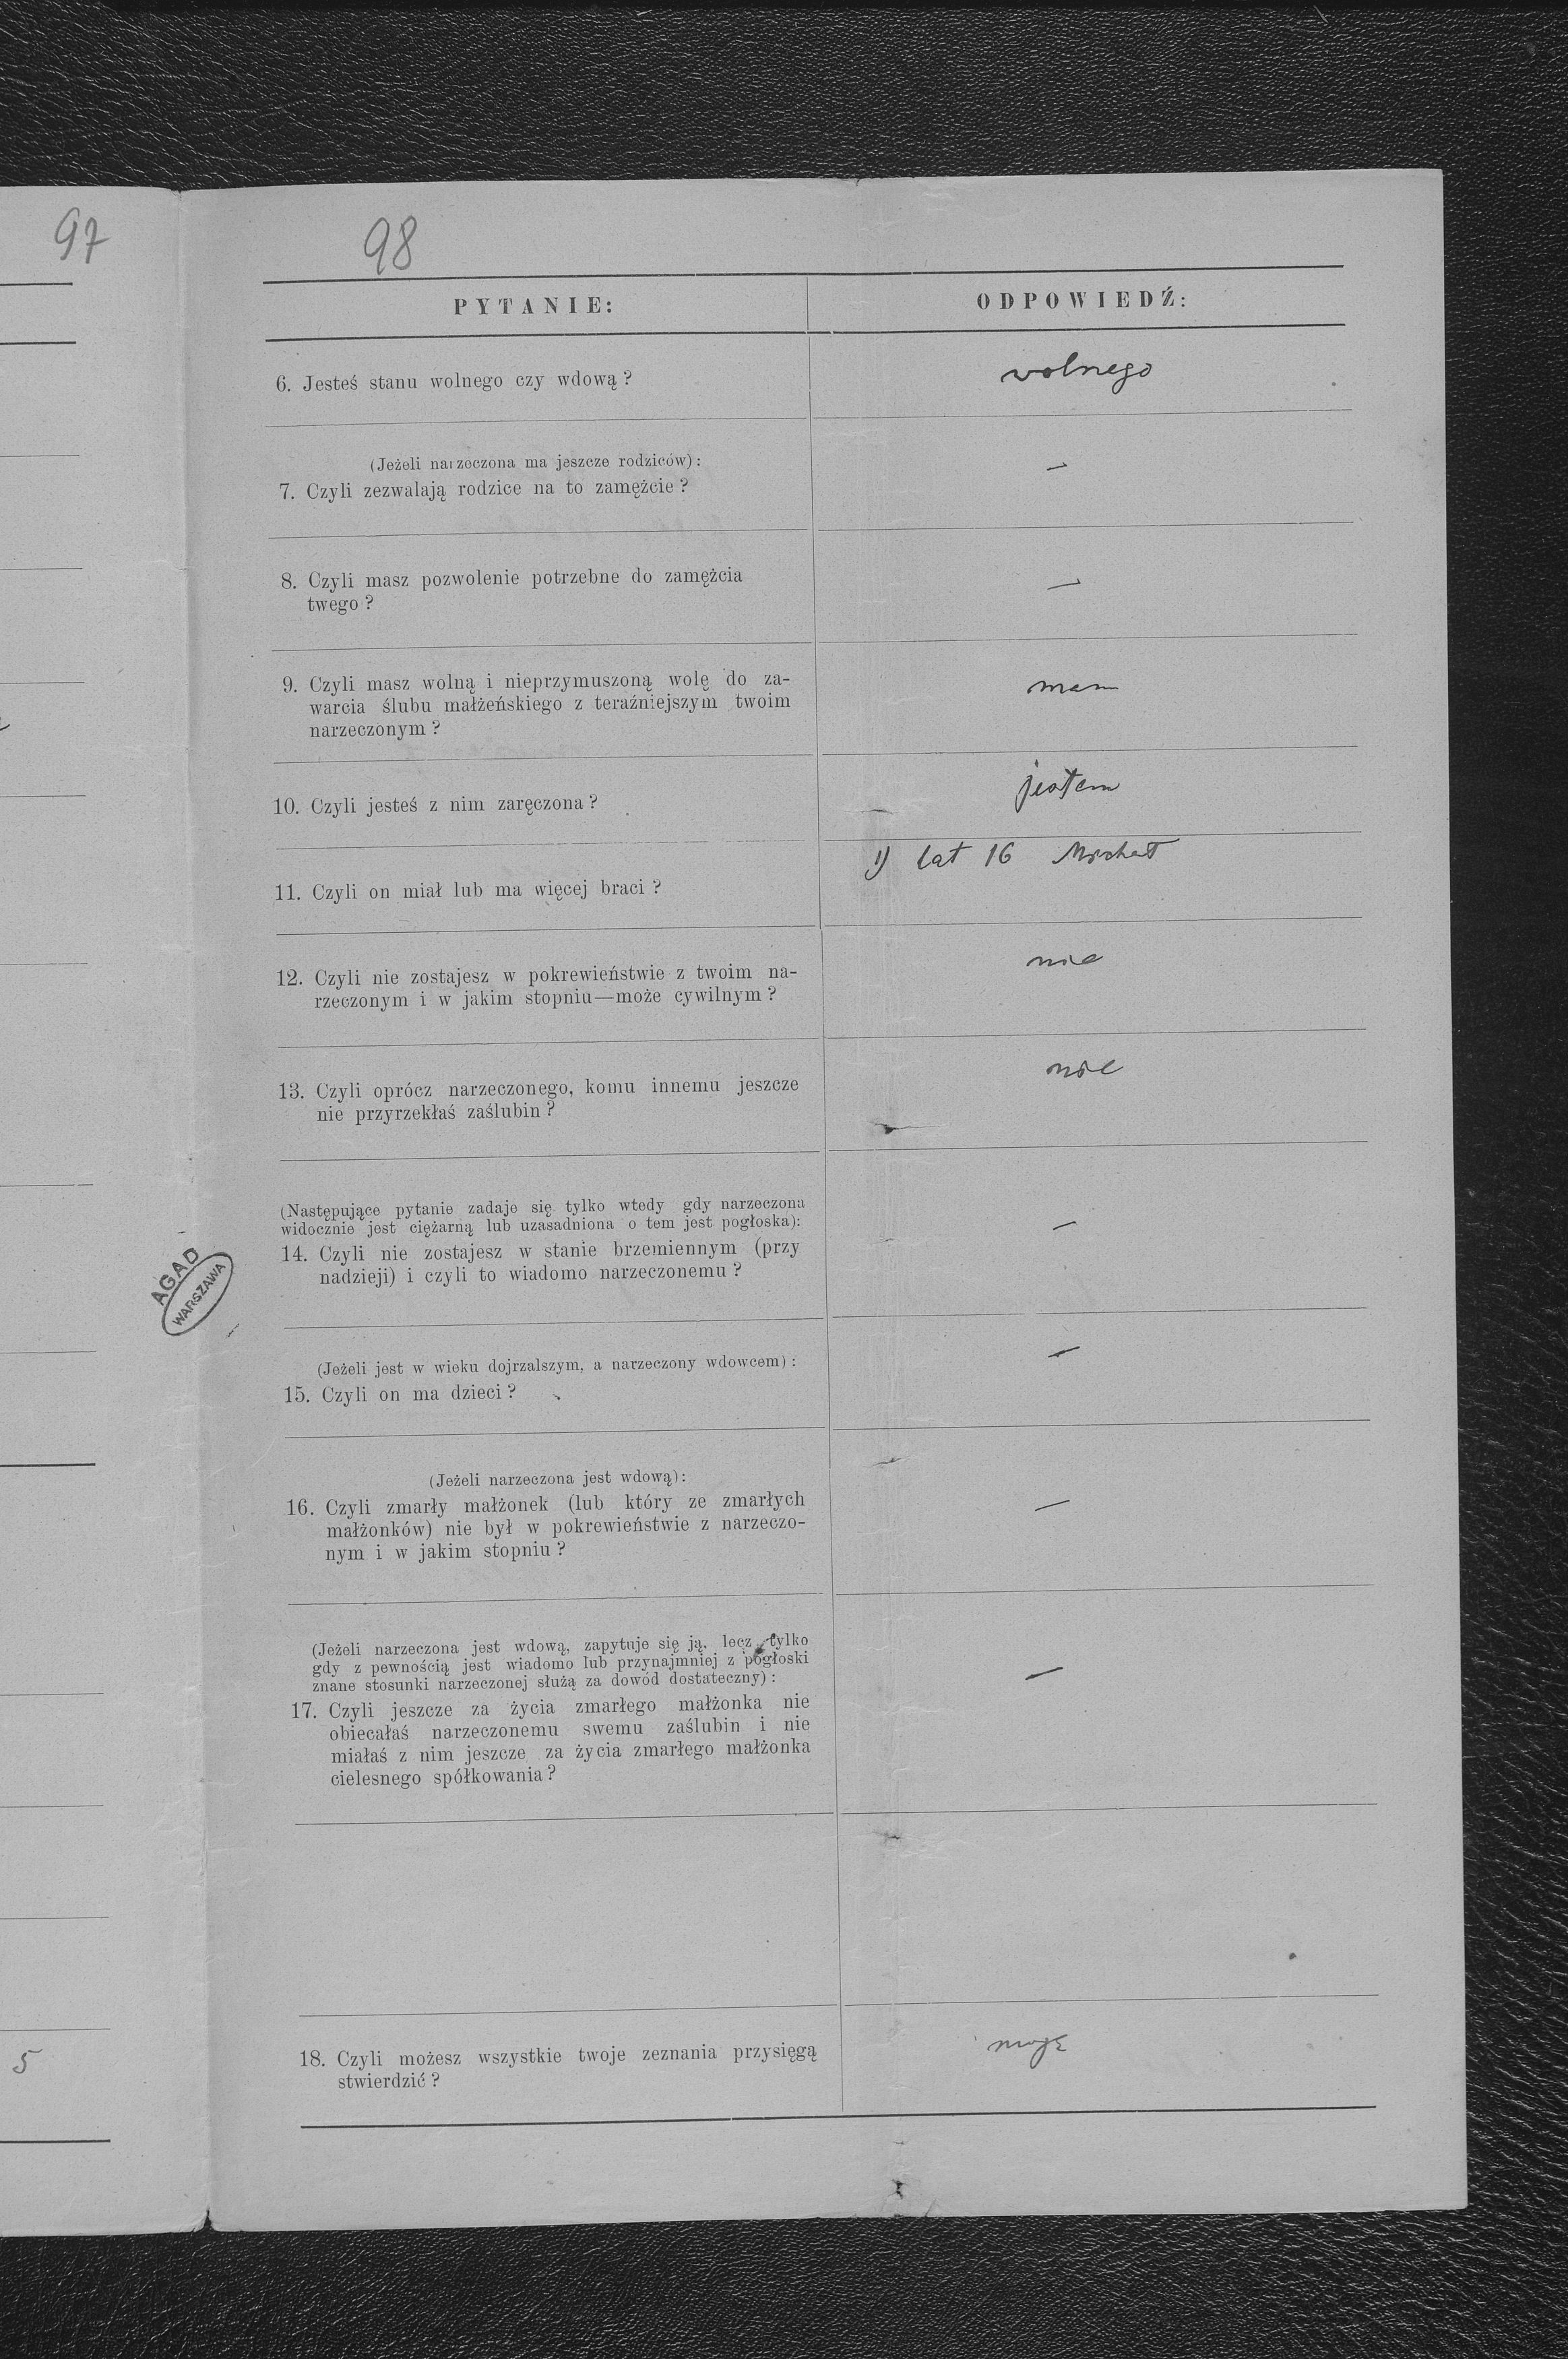 97
98
PYTANIE:
ODPOWIEDŹ:
6. Jesteś stanu wolnego czy wdową?
wolnego
(Jeżeli narzeczona ma jeszcze rodziców):
7. Czyli zezwalają rodzice na to zamężcie?
—
8. Czyli masz pozwolenie potrzebne do zamężcia
twego?
—
9. Czyli masz wolną i nieprzymuszoną wolę do za-
warcia ślubu małżeńskiego z teraźniejszym twoim
narzeczonym?
mam
10. Czyli jesteś z nim zaręczona?
jestem
11. Czyli on miał lub ma więcej braci?
1) lat 16 Michał
12. Czyli nie zostajesz w pokrewieństwie z twoim na-
rzeczonym i w jakim stopniu—może cywilnym?
nie
13. Czyli oprócz narzeczonego, komu innemu jeszcze
nie przyrzekłaś zaślubin?
nie
(Następujące pytanie zadaje się tylko wtedy gdy narzeczona
widocznie jest ciężarną lub uzasadniona o tem jest pogłoska):
14. Czyli nie zostajesz w stanie brzemiennym (przy
nadzieji) i czyli to wiadomo narzeczonemu?
—
AGAD
WARSZAWA
(Jeżeli jest w wieku dojrzalszym, a narzeczony wdowcem):
15. Czyli on ma dzieci?
—
(Jeżeli narzeczona jest wdową):
16. Czyli zmarły małżonek (lub który ze zmarłych
małżonków) nie był w pokrewieństwie z narzeczo-
nym i w jakim stopniu?
—
(Jeżeli narzeczona jest wdową, zapytuje się ją, lecz tylko
gdy z pewnością jest wiadomo lub przynajmniej z pogłoski
znane stosunki narzeczonej służą za dowód dostateczny):
17. Czyli jeszcze za życia zmarłego małżonka nie
obiecałaś narzeczonemu swemu zaślubin i nie
miałaś z nim jeszcze za życia zmarłego małżonka
cielesnego spółkowania?
—
5
18. Czyli możesz wszystkie twoje zeznania przysięgą
stwierdzić?
mogę